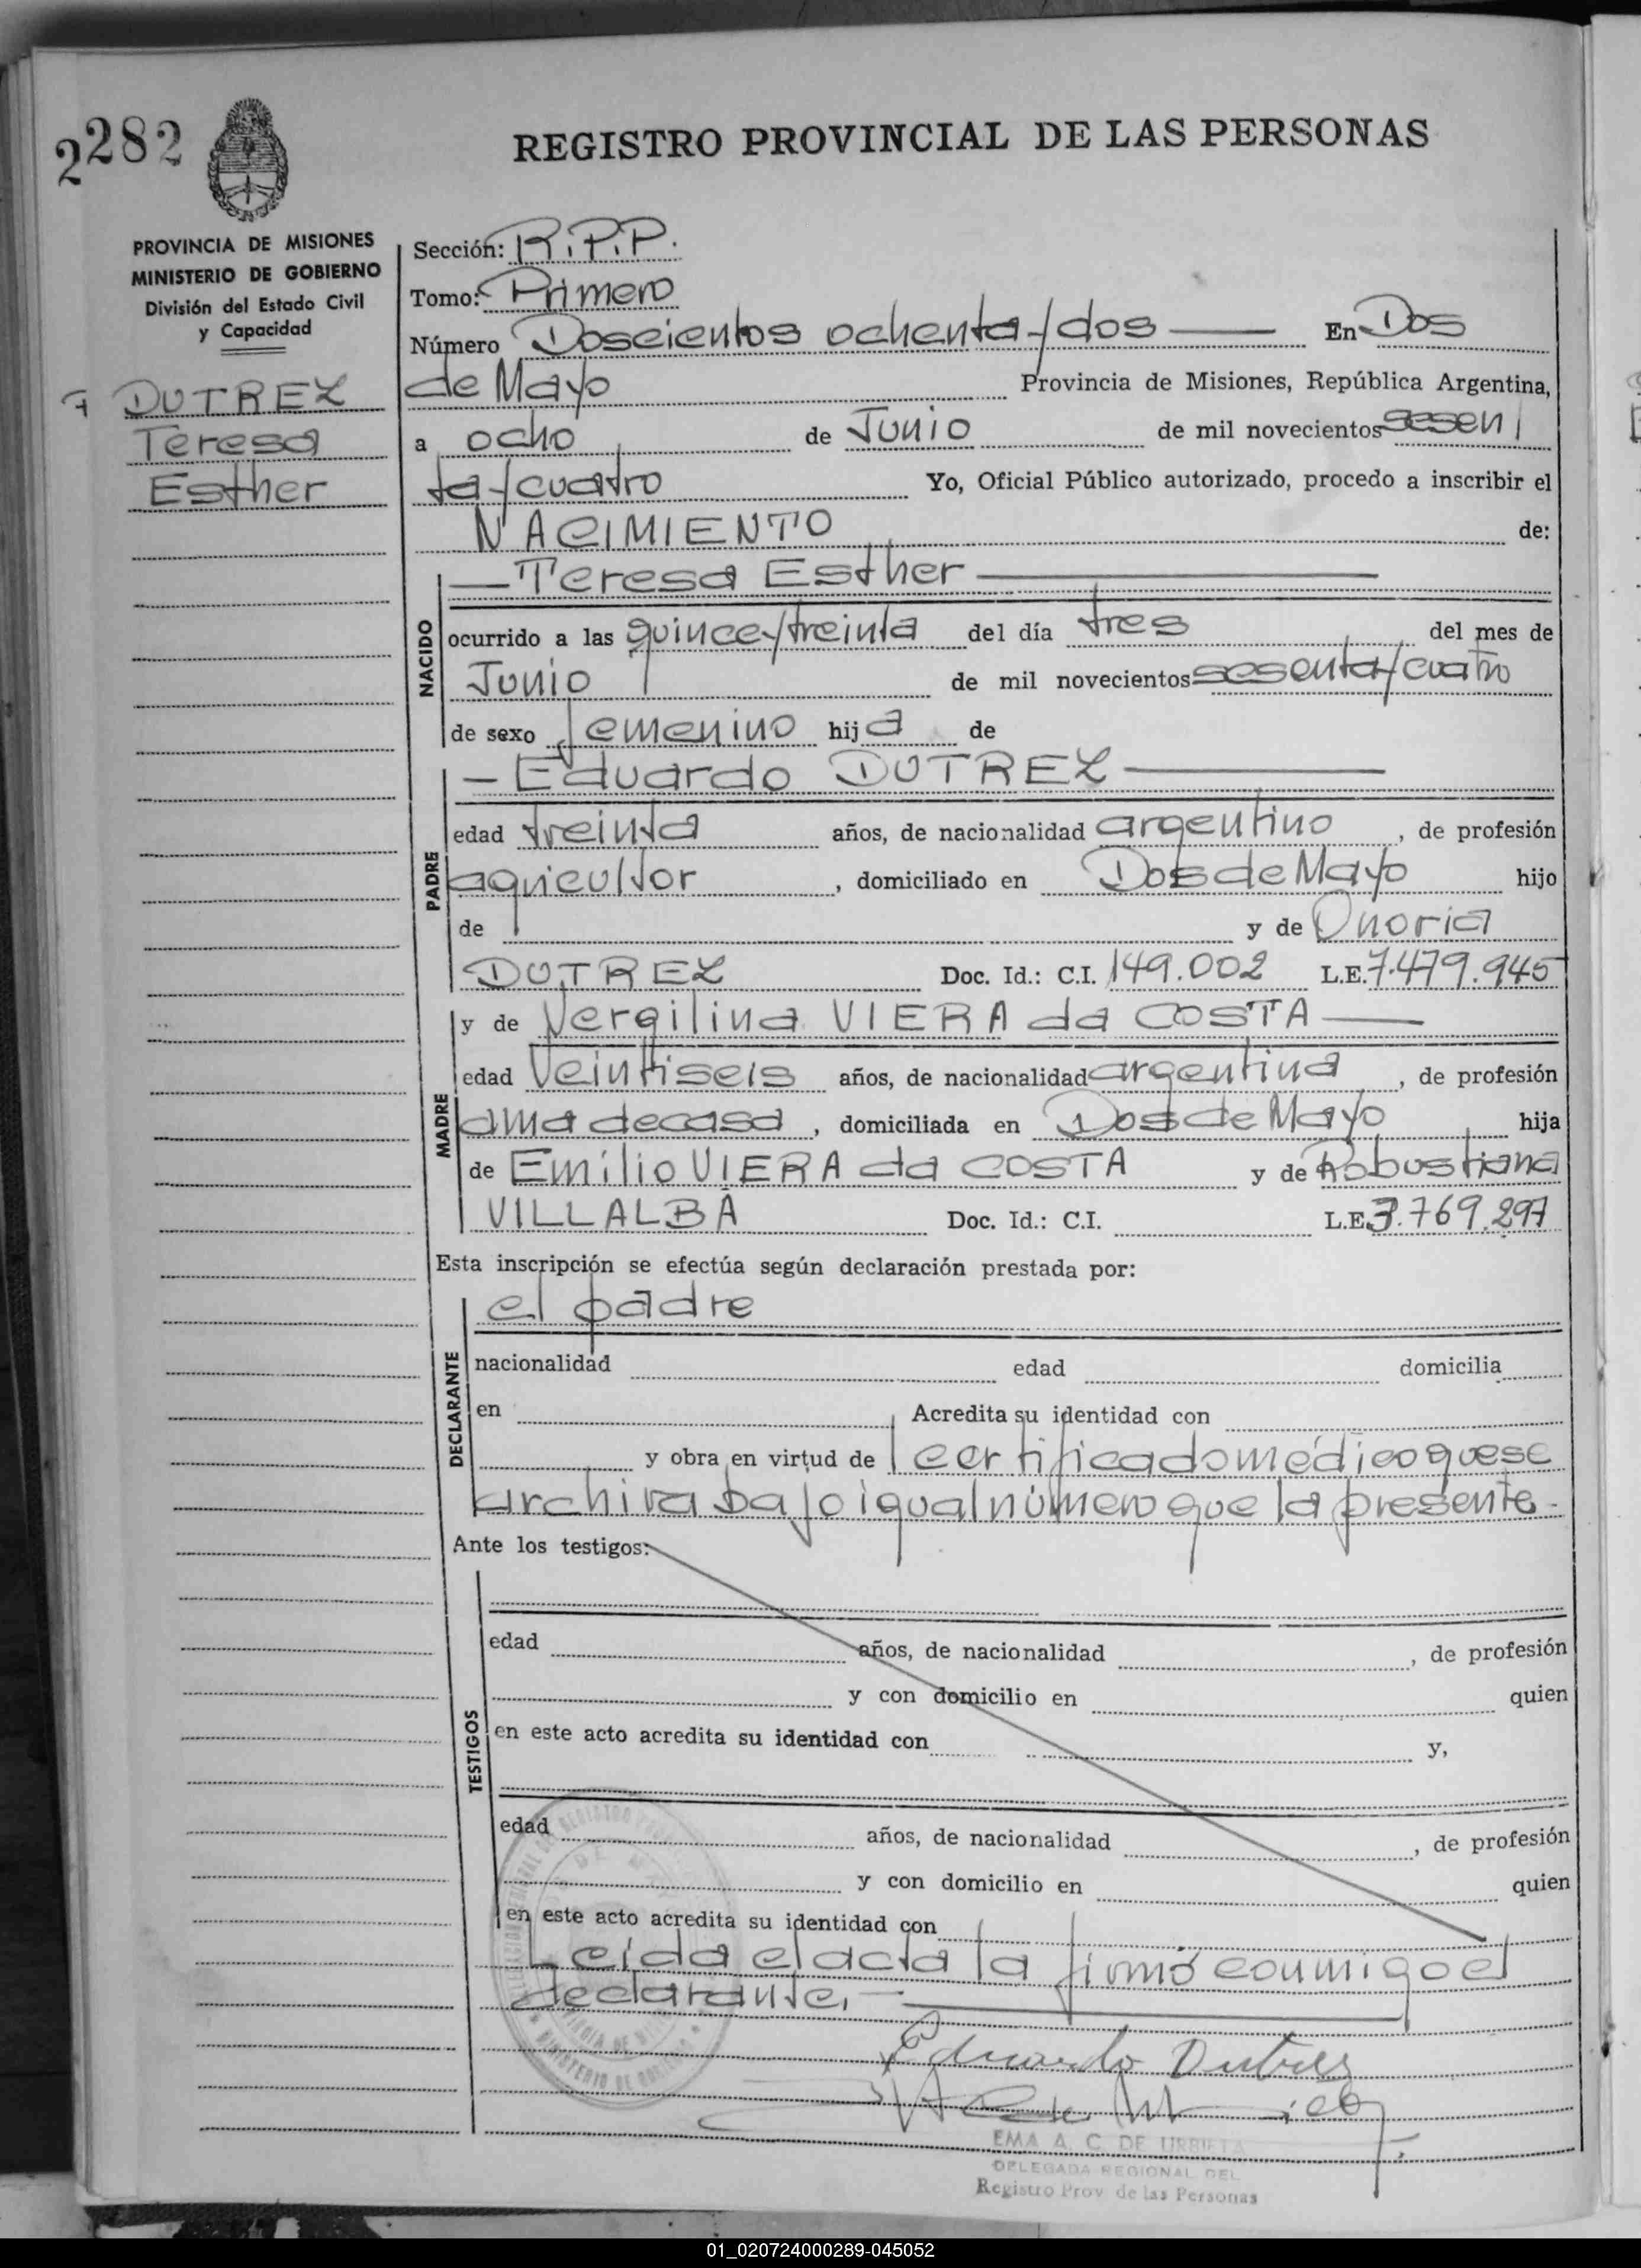 2282
REGISTRO PROVINCIAL DE LAS PERSONAS
PROVINCIA DE MISIONES
MINISTERIO DE GOBIERNO
División del Estado Civil
y Capacidad
DUTREZ
Teresa
Esther
Sección: R.P.P.
Tomo: Primero
Número Doscientos ochenta y dos En Dos
de Mayo Provincia de Misiones, República Argentina,
a ocho de Junio de mil novecientos sesen
ta y cuatro Yo, Oficial Público autorizado, procedo a inscribir el
NACIMIENTO de:
NACIDO
Teresa Esther
ocurrido a las quince y treinta del día tres del mes de
Junio de mil novecientos sesenta y cuatro
de sexo femenino hija de
PADRE
Eduardo DUTREZ
edad treinta años, de nacionalidad argentino, de profesión
agricultor, domiciliado en Dos de Mayo hijo
de y de Onoria
DUTREZ Doc. Id.: C.I. 149.002 L.E. 7.479.945
MADRE
y de Vergilina VIERA da COSTA
edad Veintiseis años, de nacionalidad argentina, de profesión
ama de casa, domiciliada en Dos de Mayo hija
de Emilio VIERA da COSTA y de Robustiana
VILLALBA Doc. Id.: C.I. L.E. 3.769.297
Esta inscripción se efectúa según declaración prestada por:
DECLARANTE
el padre
nacionalidad edad domicilia
en Acredita su identidad con
y obra en virtud de certificado médico que se
archiva bajo igual número que la presente.
Ante los testigos:
TESTIGOS
edad años, de nacionalidad, de profesión
y con domicilio en quien
en este acto acredita su identidad con y,
edad años, de nacionalidad, de profesión
y con domicilio en quien
en este acto acredita su identidad con
Leída el acta la firmó conmigo el
declarante.
Eduardo Dutrez
EMA A. C. DE URRIETA
DELEGADA REGIONAL DEL
Registro Prov. de las Personas
01_020724000289-045052